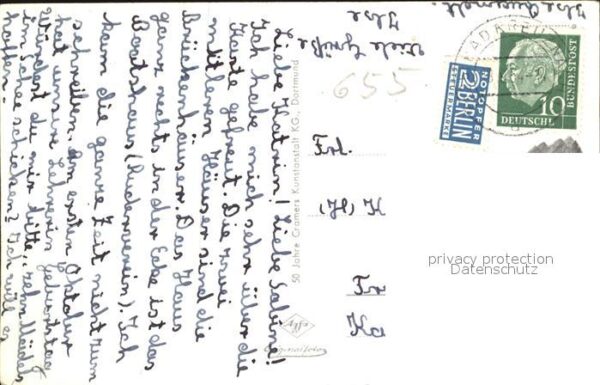 Liebe Katrin! Liebe Sabine!
Ich habe mich sehr über die
Karte gefreut. Die zwei
mittleren Häuser sind die
Brückenhäuser. Das Haus
ganz rechts in der Ecke ist das
Bootshaus (Ruderverein). Ich
kam die ganze Zeit nicht zum
schreiben. Am ersten Oktober
hat unsere Lehrerin Geburtstag
Würdest du mir bitte, zehn Mädels
im Schnee schicken? Ich will es
hoffen.
Viele Grüße
Ilse
50 Jahre Cramers Kunstanstalt KG., Dortmund
655
NOTOPFER
2 BERLIN
STEUERMARKE
10
DEUTSCHE
BUNDESPOST
Frl.
K
Fr
Ka
Agfa
privacy protection
Datenschutz